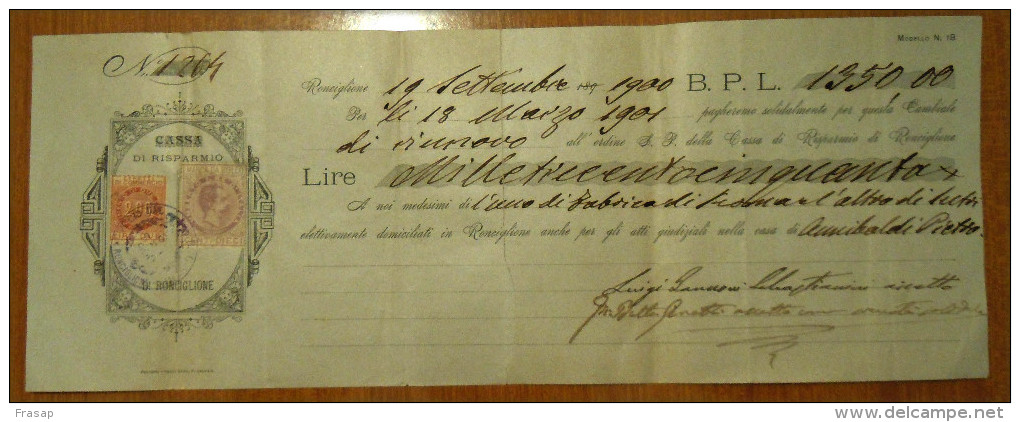 Modello N. 1B
N. 1264
Ronciglione 19 Settembre 189 1900 B. P. L. 1350 00
Per li 18 Marzo 1901 pagheremo solidalmente per questa Cambiale
di rinnovo all'ordine S. P. della Cassa di Risparmio di Ronciglione
Lire Milletrecentocinquanta
A noi medesimi di l'uno di Fabrica di Roma e l'altro di Sutri
elettivamente domiciliati in Ronciglione anche per gli atti giudiziali nella casa di Annibaldi Pietro
CASSA
DI RISPARMIO
DI RONCIGLIONE
Luigi Sebastianini accetto
accetto
Frasap
delcampe.net